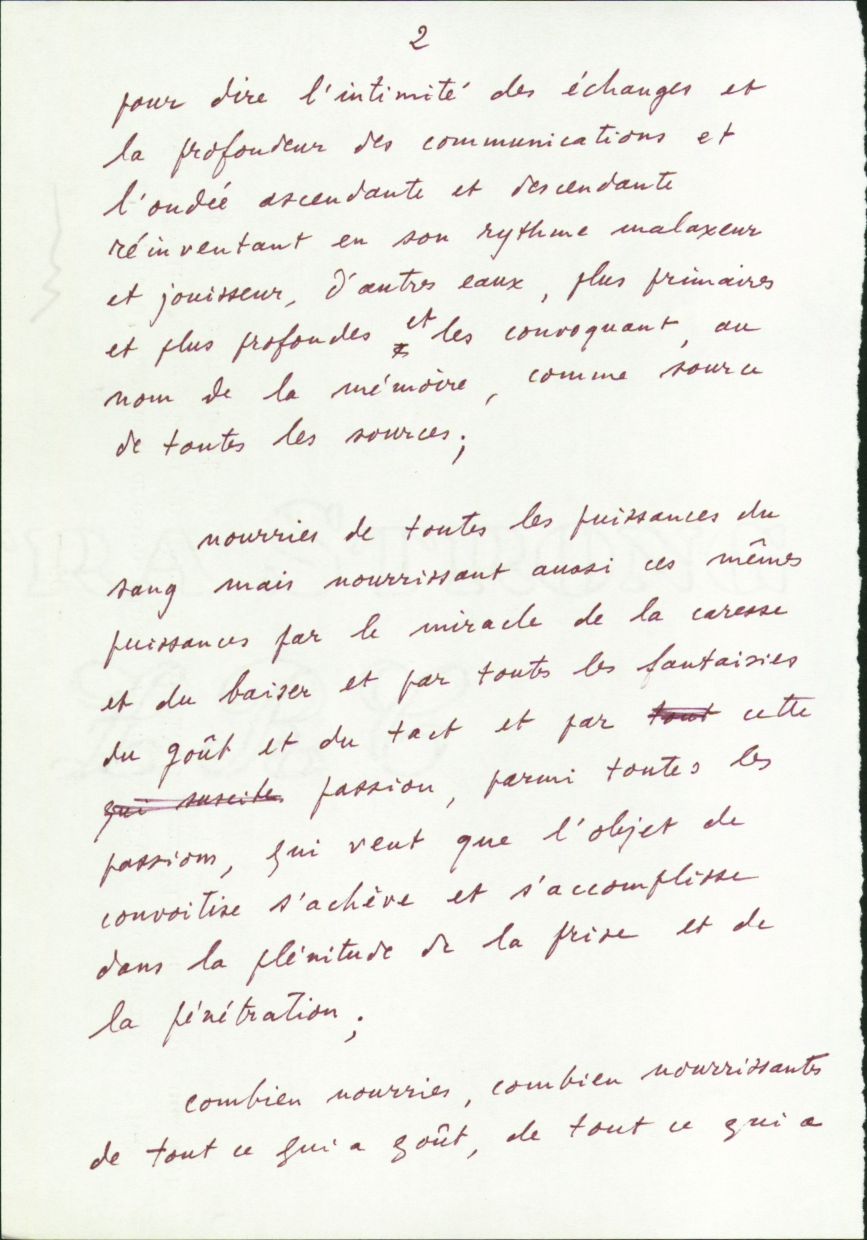 2
pour dire l'intimité des échanges et
la profondeur des communications et
l'ondée ascendante et descendante
réinventant en son rythme malaxeur
et jouisseur, d'autres eaux, plus primaires
et plus profondes et les convoquant, au
nom de la mémoire, comme source
de toutes les sources;
nourries de toutes les puissances du
sang mais nourrissant aussi ces mêmes
puissances par le miracle de la caresse
et du baiser et par toutes les fantaisies
du goût et du tact et par tout cette
qui suscite passion, parmi toutes les
passions, qui veut que l'objet de
convoitise s'achève et s'accomplisse
dans la plénitude de la prise et de
la pénétration;
combien nourries, combien nourrissantes
de tout ce qui a goût, de tout ce qui a